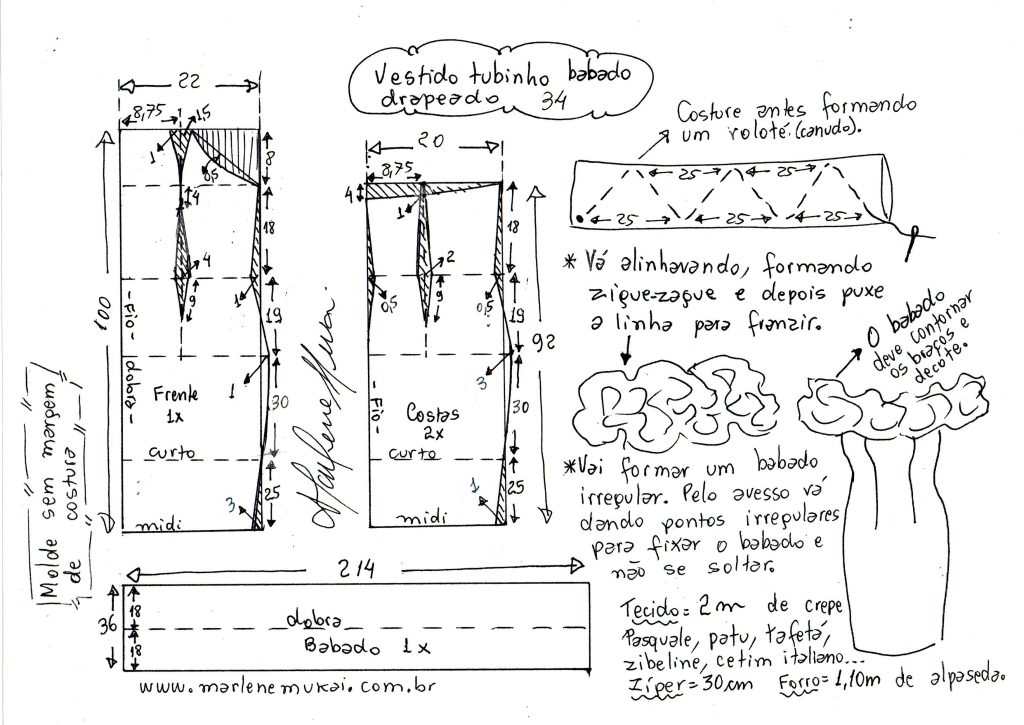 Vestido tubinho babado
drapeado 34
22
8,75
1,5
1
0,5
8
4
18
4
9
1
100
19
-Fio- dobra-
1
Frente
1x
30
curto
25
3
midi
Molde sem margem
de costura
Marlene Mukai
20
8,75
4
1
18
2
9
0,5
0,5
19
92
3
-Fio-
Costas
2x
30
curto
1
25
midi
214
36
18
18
dobra
Babado 1x
www.marlenemukai.com.br
Costure antes formando
um roloté.(canudo).
25 25
25 25 25
* Vá alinhavando, formando
zigue-zague e depois puxe
a linha para franzir.
O babado
deve contornar
os braços e
decote.
*Vai formar um babado
irregular. Pelo avesso vá
dando pontos irregulares
para fixar o babado e
não se soltar.
Tecido= 2m de crepe
Pasquale, patu, tafetá,
zibeline, cetim italiano...
Zíper=30cm Forro=1,10m de alpaseda.